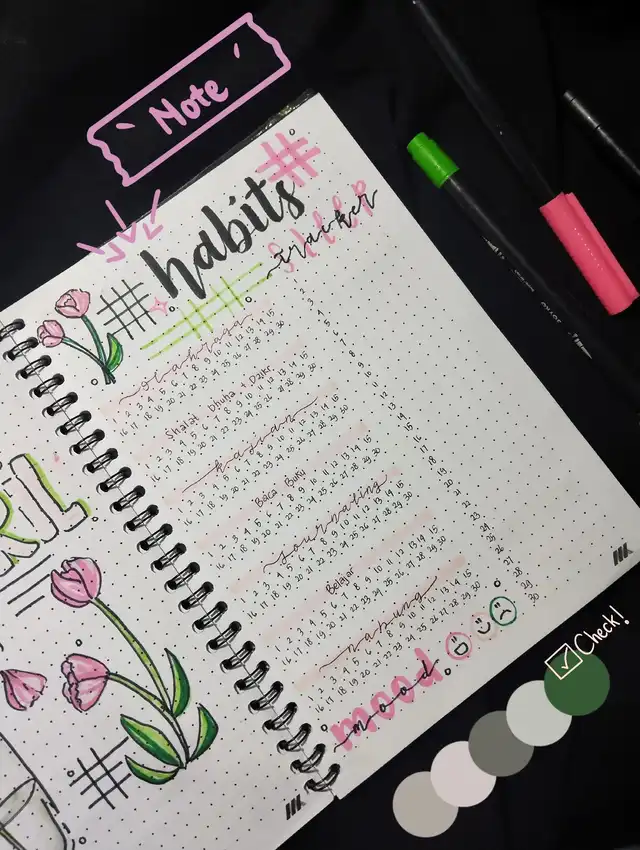 Note
# habits #
sleep
tracker
#
olahraga
1 2 3 4 5 6 7 8 9 10 11 12 13 14 15
16 17 18 19 20 21 22 23 24 25 26 27 28 29 30
Shalat Dhuha + Dzikr
1 2 3 4 5 6 7 8 9 10 11 12 13 14 15
16 17 18 19 20 21 22 23 24 25 26 27 28 29 30
kajian
1 2 3 4 5 6 7 8 9 10 11 12 13 14 15
16 17 18 19 20 21 22 23 24 25 26 27 28 29 30
Baca Buku
1 2 3 4 5 6 7 8 9 10 11 12 13 14 15
16 17 18 19 20 21 22 23 24 25 26 27 28 29 30
journaling
1 2 3 4 5 6 7 8 9 10 11 12 13 14 15
16 17 18 19 20 21 22 23 24 25 26 27 28 29 30
Belajar
1 2 3 4 5 6 7 8 9 10 11 12 13 14 15
16 17 18 19 20 21 22 23 24 25 26 27 28 29 30
nabung
1 2 3 4 5 6 7 8 9 10 11 12 13 14 15
16 17 18 19 20 21 22 23 24 25 26 27 28 29 30
mood
1
2
3
4
5
6
7
8
9
10
11
12
13
14
15
16
17
18
19
20
21
22
23
24
25
26
27
28
29
30
RIL
#
Check!